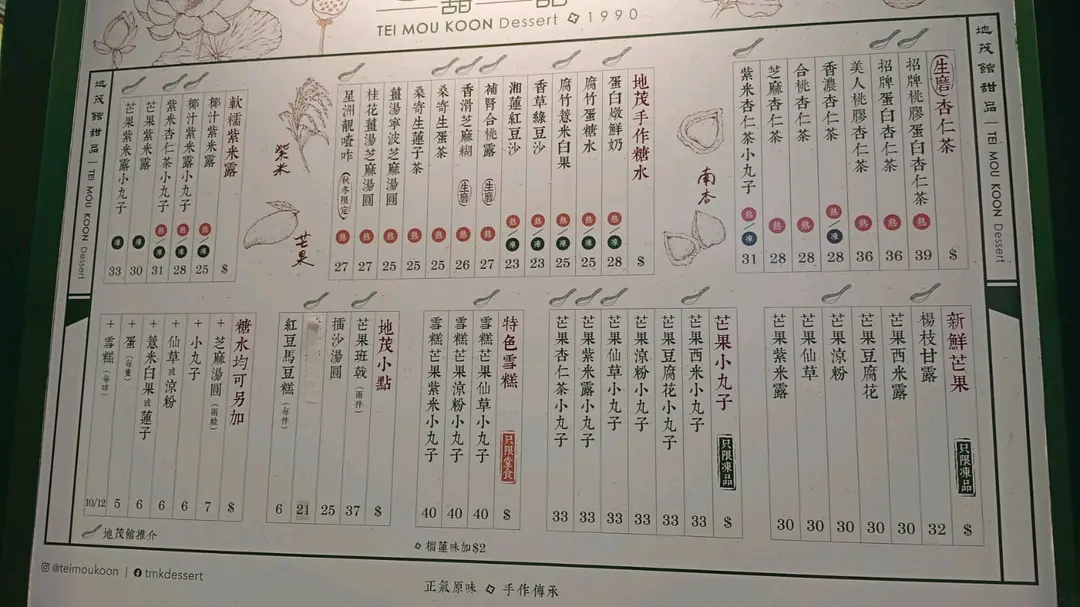 甜品
TEI MOU KOON Dessert 1990
地茂館甜品 | TEI MOU KOON Dessert
生磨杏仁茶 $
招牌桃膠蛋白杏仁茶 熱 39
招牌蛋白杏仁茶 熱 36
美人桃膠杏仁茶 熱 36
香濃杏仁茶 熱/凍 28
合桃杏仁茶 熱 28
芝麻杏仁茶 熱 28
紫米杏仁茶小丸子 熱/凍 31
南杏
地茂手作糖水 $
蛋白燉鮮奶 熱/凍 28
腐竹蛋糖水 熱/凍 25
腐竹薏米白果 熱/凍 25
香草綠豆沙 熱/凍 23
湘蓮紅豆沙 熱/凍 23
補腎合桃露 生磨 熱 27
香滑芝麻糊 生磨 熱 26
桑寄生蛋茶 熱 25
桑寄生蓮子茶 熱 25
薑湯寧波芝麻湯圓 熱 25
桂花薑湯芝麻湯圓 熱 27
星洲靚喳咋(秋冬限定) 熱 27
紫米
芒果
軟糯紫米露 $
椰汁紫米露 熱/凍 25
椰汁紫米露小丸子 熱/凍 28
紫米杏仁茶小丸子 熱/凍 31
芒果紫米露 凍 30
芒果紫米露小丸子 凍 33
地茂館甜品 | TEI MOU KOON Dessert
新鮮芒果 只限凍品 $
楊枝甘露 32
芒果西米露 30
芒果豆腐花 30
芒果涼粉 30
芒果仙草 30
芒果紫米露 30
芒果小丸子 只限凍品 $
芒果西米小丸子 33
芒果豆腐花小丸子 33
芒果涼粉小丸子 33
芒果仙草小丸子 33
芒果紫米露小丸子 33
芒果杏仁茶小丸子 33
特色雪糕 只限堂食 $
雪糕芒果仙草小丸子 40
雪糕芒果涼粉小丸子 40
雪糕芒果紫米小丸子 40
榴蓮味加$2
地茂小點 $
芒果班戟(兩件) 37
擂沙湯圓 25
21
紅豆馬豆糕(每件) 6
糖水均可另加 $
+芝麻湯圓(兩粒) 7
+小丸子 6
+仙草或涼粉 6
+薏米白果或蓮子 6
+蛋(每隻) 5
+雪糕(每球) 10/12
地茂館推介
@teimoukoon | tmkdessert
正氣原味 手作傳承